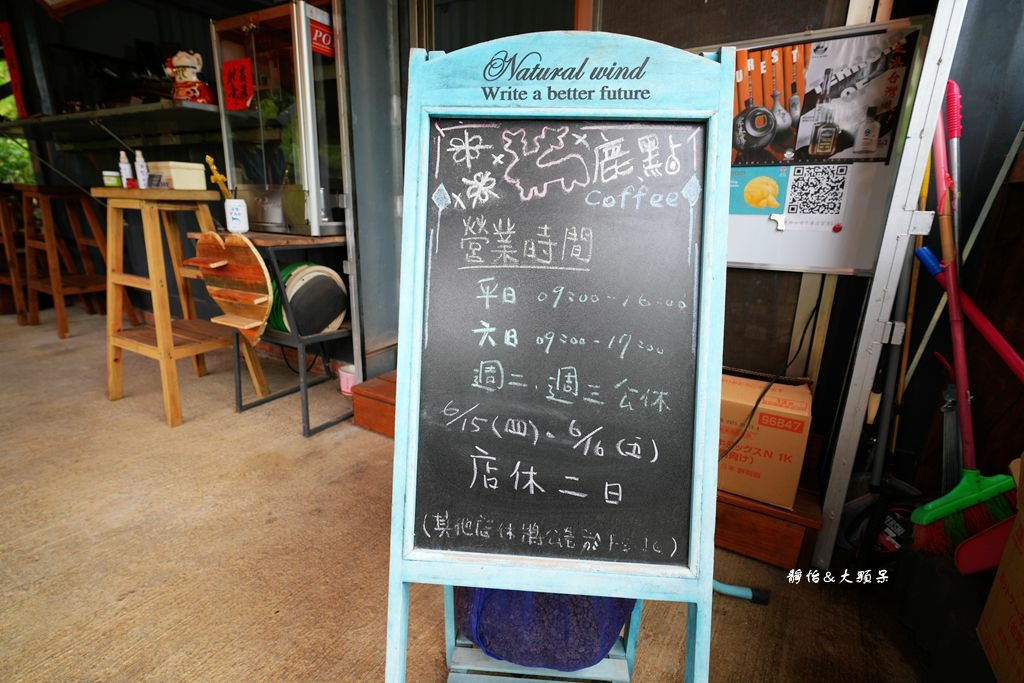 Natural wind
Write a better future
鹿點
Coffee
營業時間
平日 09:00-16:00
六日 09:00-17:00
週二、週三公休
6/15(四)、6/16(五)
店休二日
(其他店休將公告於FB、IG)
PO
96847
靜怡&大顆呆